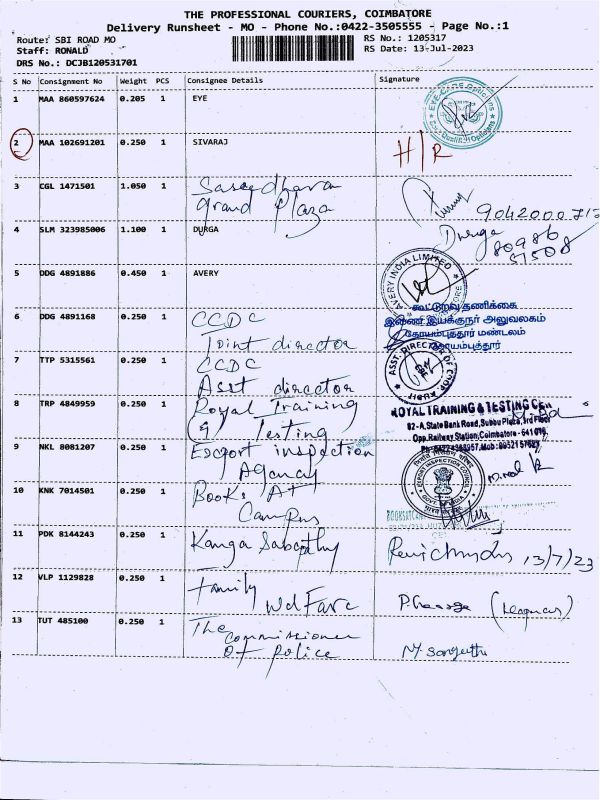 THE PROFESSIONAL COURIERS, COIMBATORE
Delivery Runsheet - MO - Phone No.:0422-3505555 - Page No.:1
Route: SBI ROAD MO
RS No.: 1205317
Staff: RONALD
RS Date: 13-Jul-2023
DRS No.: DCJB120531701
S No Consignment No Weight PCS Consignee Details Signature
1 MAA 860597624 0.205 1 EYE
EYE CARE Opticians
2 MAA 102691201 0.250 1 SIVARAJ H/R
3 CGL 1471501 1.050 1
Grand Plaza
4 SLM 323985006 1.100 1 DURGA Durga
80986
51508
5 DDG 4891886 0.450 1 AVERY
AVERY INDIA LIMITED
6 DDG 4891168 0.250 1 CCDC
Joint director
கூட்டுறவு தணிக்கை
இணை இயக்குநர் அலுவலகம்
கோயம்புத்தூர் மண்டலம்
கோயம்புத்தூர்
7 TTP 5315561 0.250 1 CCDC
Asst director
ASST. DIRECTOR OF COOP. AUDIT
8 TRP 4849959 0.250 1 Royal Training
& Testing
ROYAL TRAINING & TESTING CEN
82-A, State Bank Road, Subbu Plaza, 3rd Floor
Opp. Railway Station, Coimbatore - 641 018.
9 NKL 8081207 0.250 1 Export inspection
Agency
EXPORT INSPECTION COUNCIL
10 KNK 7014501 0.250 1 Books AT
Campus
11 PDK 8144243 0.250 1 Kanga Sabapthy 13/7/23
12 VLP 1129828 0.250 1 Family
Welfare
13 TUT 485100 0.250 1 The
Commissioner
Of Police